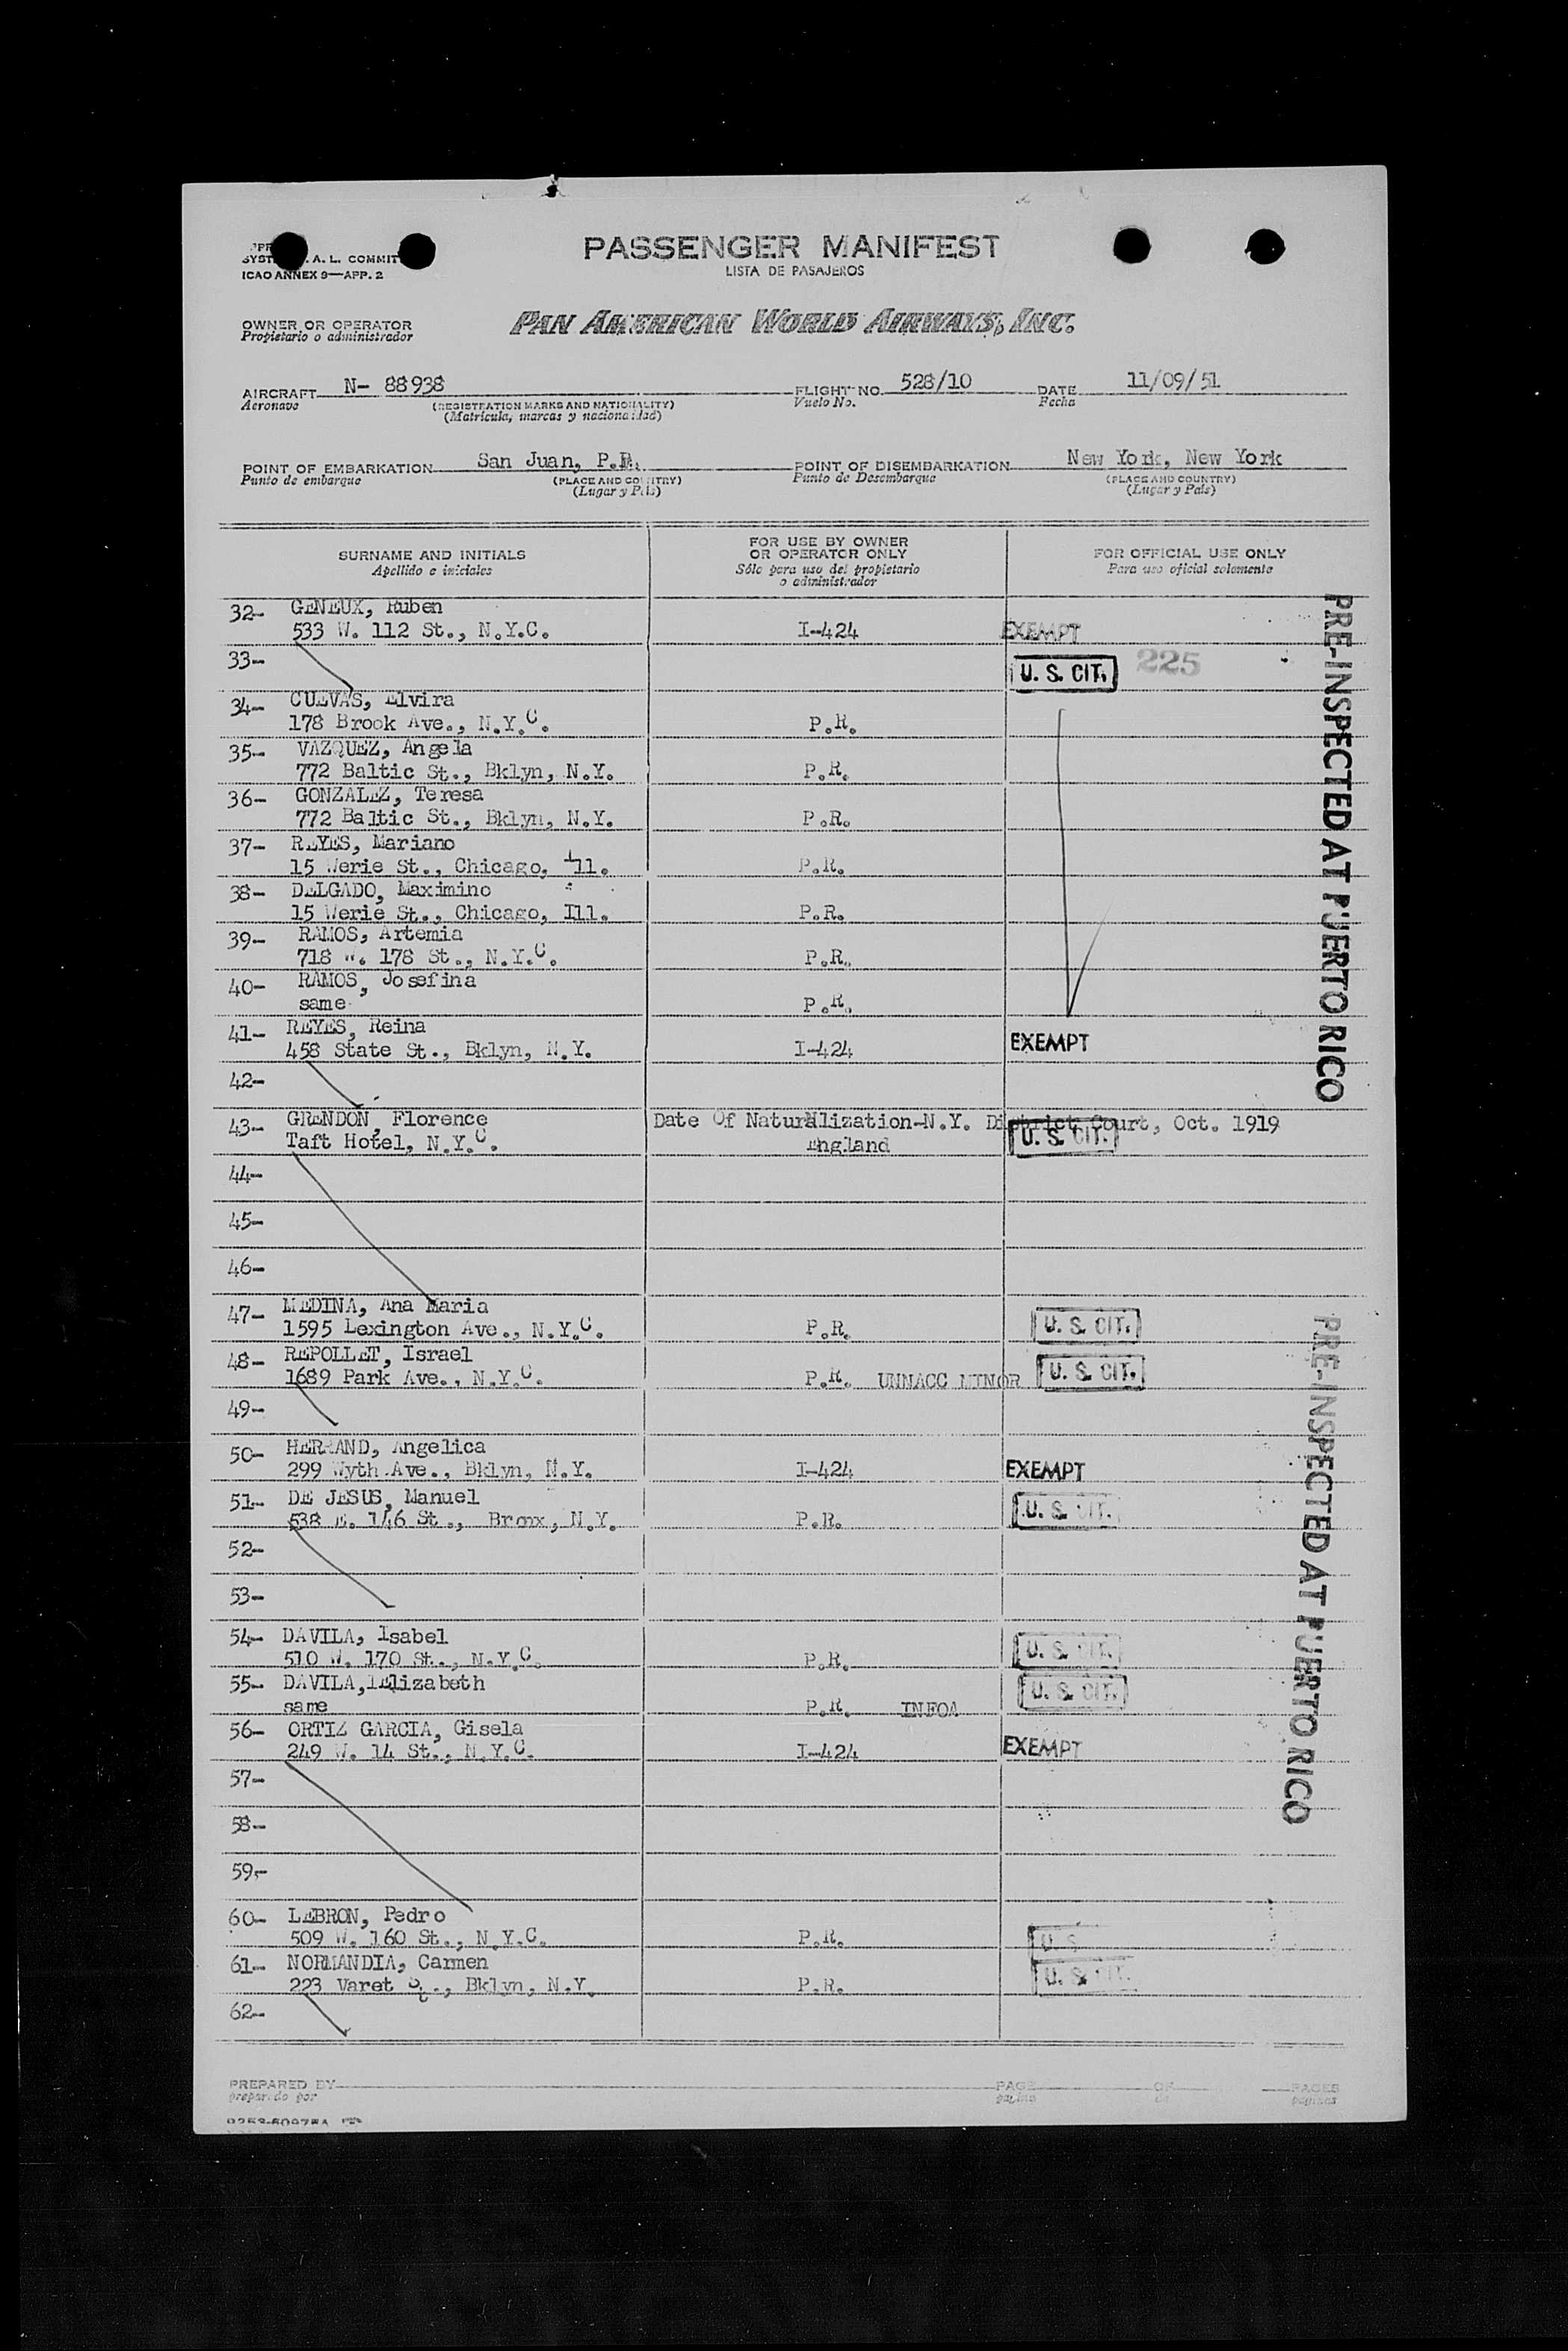 PASSENGER MANIFEST
LISTA DE PASAJEROS
A. L. COMMIT
ICAO ANNEX 9—APP. 2
OWNER OR OPERATOR
Propietario o administrador
PAN AMERICAN WORLD AIRWAYS, INC.
AIRCRAFT N- 88938 FLIGHT NO. 528/10 DATE 11/09/51
Aeronave (REGISTRATION MARKS AND NATIONALITY) Vuelo No. Fecha
(Matrícula, marcas y nacionalidad)
POINT OF EMBARKATION San Juan, P.R. POINT OF DISEMBARKATION New York, New York
Punto de embarque (PLACE AND COUNTRY) Punto de Desembarque (PLACE AND COUNTRY)
(Lugar y País) (Lugar y País)
SURNAME AND INITIALS
Apellido e iniciales
FOR USE BY OWNER
OR OPERATOR ONLY
Sólo para uso del propietario
o administrador
FOR OFFICIAL USE ONLY
Para uso oficial solamente
32- GENEUX, Ruben
533 W. 112 St., N.Y.C. I-424 EXEMPT
33- U. S. CIT. 225
34- CUEVAS, Elvira
178 Brook Ave., N.Y.C. P.R.
35- VAZQUEZ, Angela
772 Baltic St., Bklyn, N.Y. P.R.
36- GONZALEZ, Teresa
772 Baltic St., Bklyn, N.Y. P.R.
37- REYES, Mariano
15 Werie St., Chicago, Ill. P.R.
38- DELGADO, Maximino
15 Werie St., Chicago, Ill. P.R.
39- RAMOS, Artemia
718 W. 178 St., N.Y.C. P.R.
40- RAMOS, Josefina
same P.R.
41- REYES, Reina
458 State St., Bklyn, N.Y. I-424 EXEMPT
42-
43- GRENDON, Florence Date Of Naturalization-N.Y. District Court, Oct. 1919
Taft Hotel, N.Y.C. England U. S. CIT.
44-
45-
46-
47- MEDINA, Ana Maria
1595 Lexington Ave., N.Y.C. P.R. U. S. CIT.
48- REPOLLET, Israel
1689 Park Ave., N.Y.C. P.R. UNNACC MINOR U. S. CIT.
49-
50- HERRAND, Angelica
299 Wyth Ave., Bklyn, N.Y. I-424 EXEMPT
51- DE JESUS, Manuel
538 E. 146 St., Bronx, N.Y. P.R. U. S. CIT.
52-
53-
54- DAVILA, Isabel
510 W. 170 St., N.Y.C. P.R. U. S. CIT.
55- DAVILA, Elizabeth
same P.R. INFOA U. S. CIT.
56- ORTIZ GARCIA, Gisela
249 W. 14 St., N.Y.C. I-424 EXEMPT
57-
58-
59-
60- LEBRON, Pedro
509 W. 160 St., N.Y.C. P.R. U. S.
61- NORMANDIA, Carmen
223 Varet St., Bklyn, N.Y. P.R. U. S. CIT.
62-
PRE-INSPECTED AT PUERTO RICO
PRE-INSPECTED AT PUERTO RICO
PREPARED BY PAGE OF PAGES
preparado por página de páginas